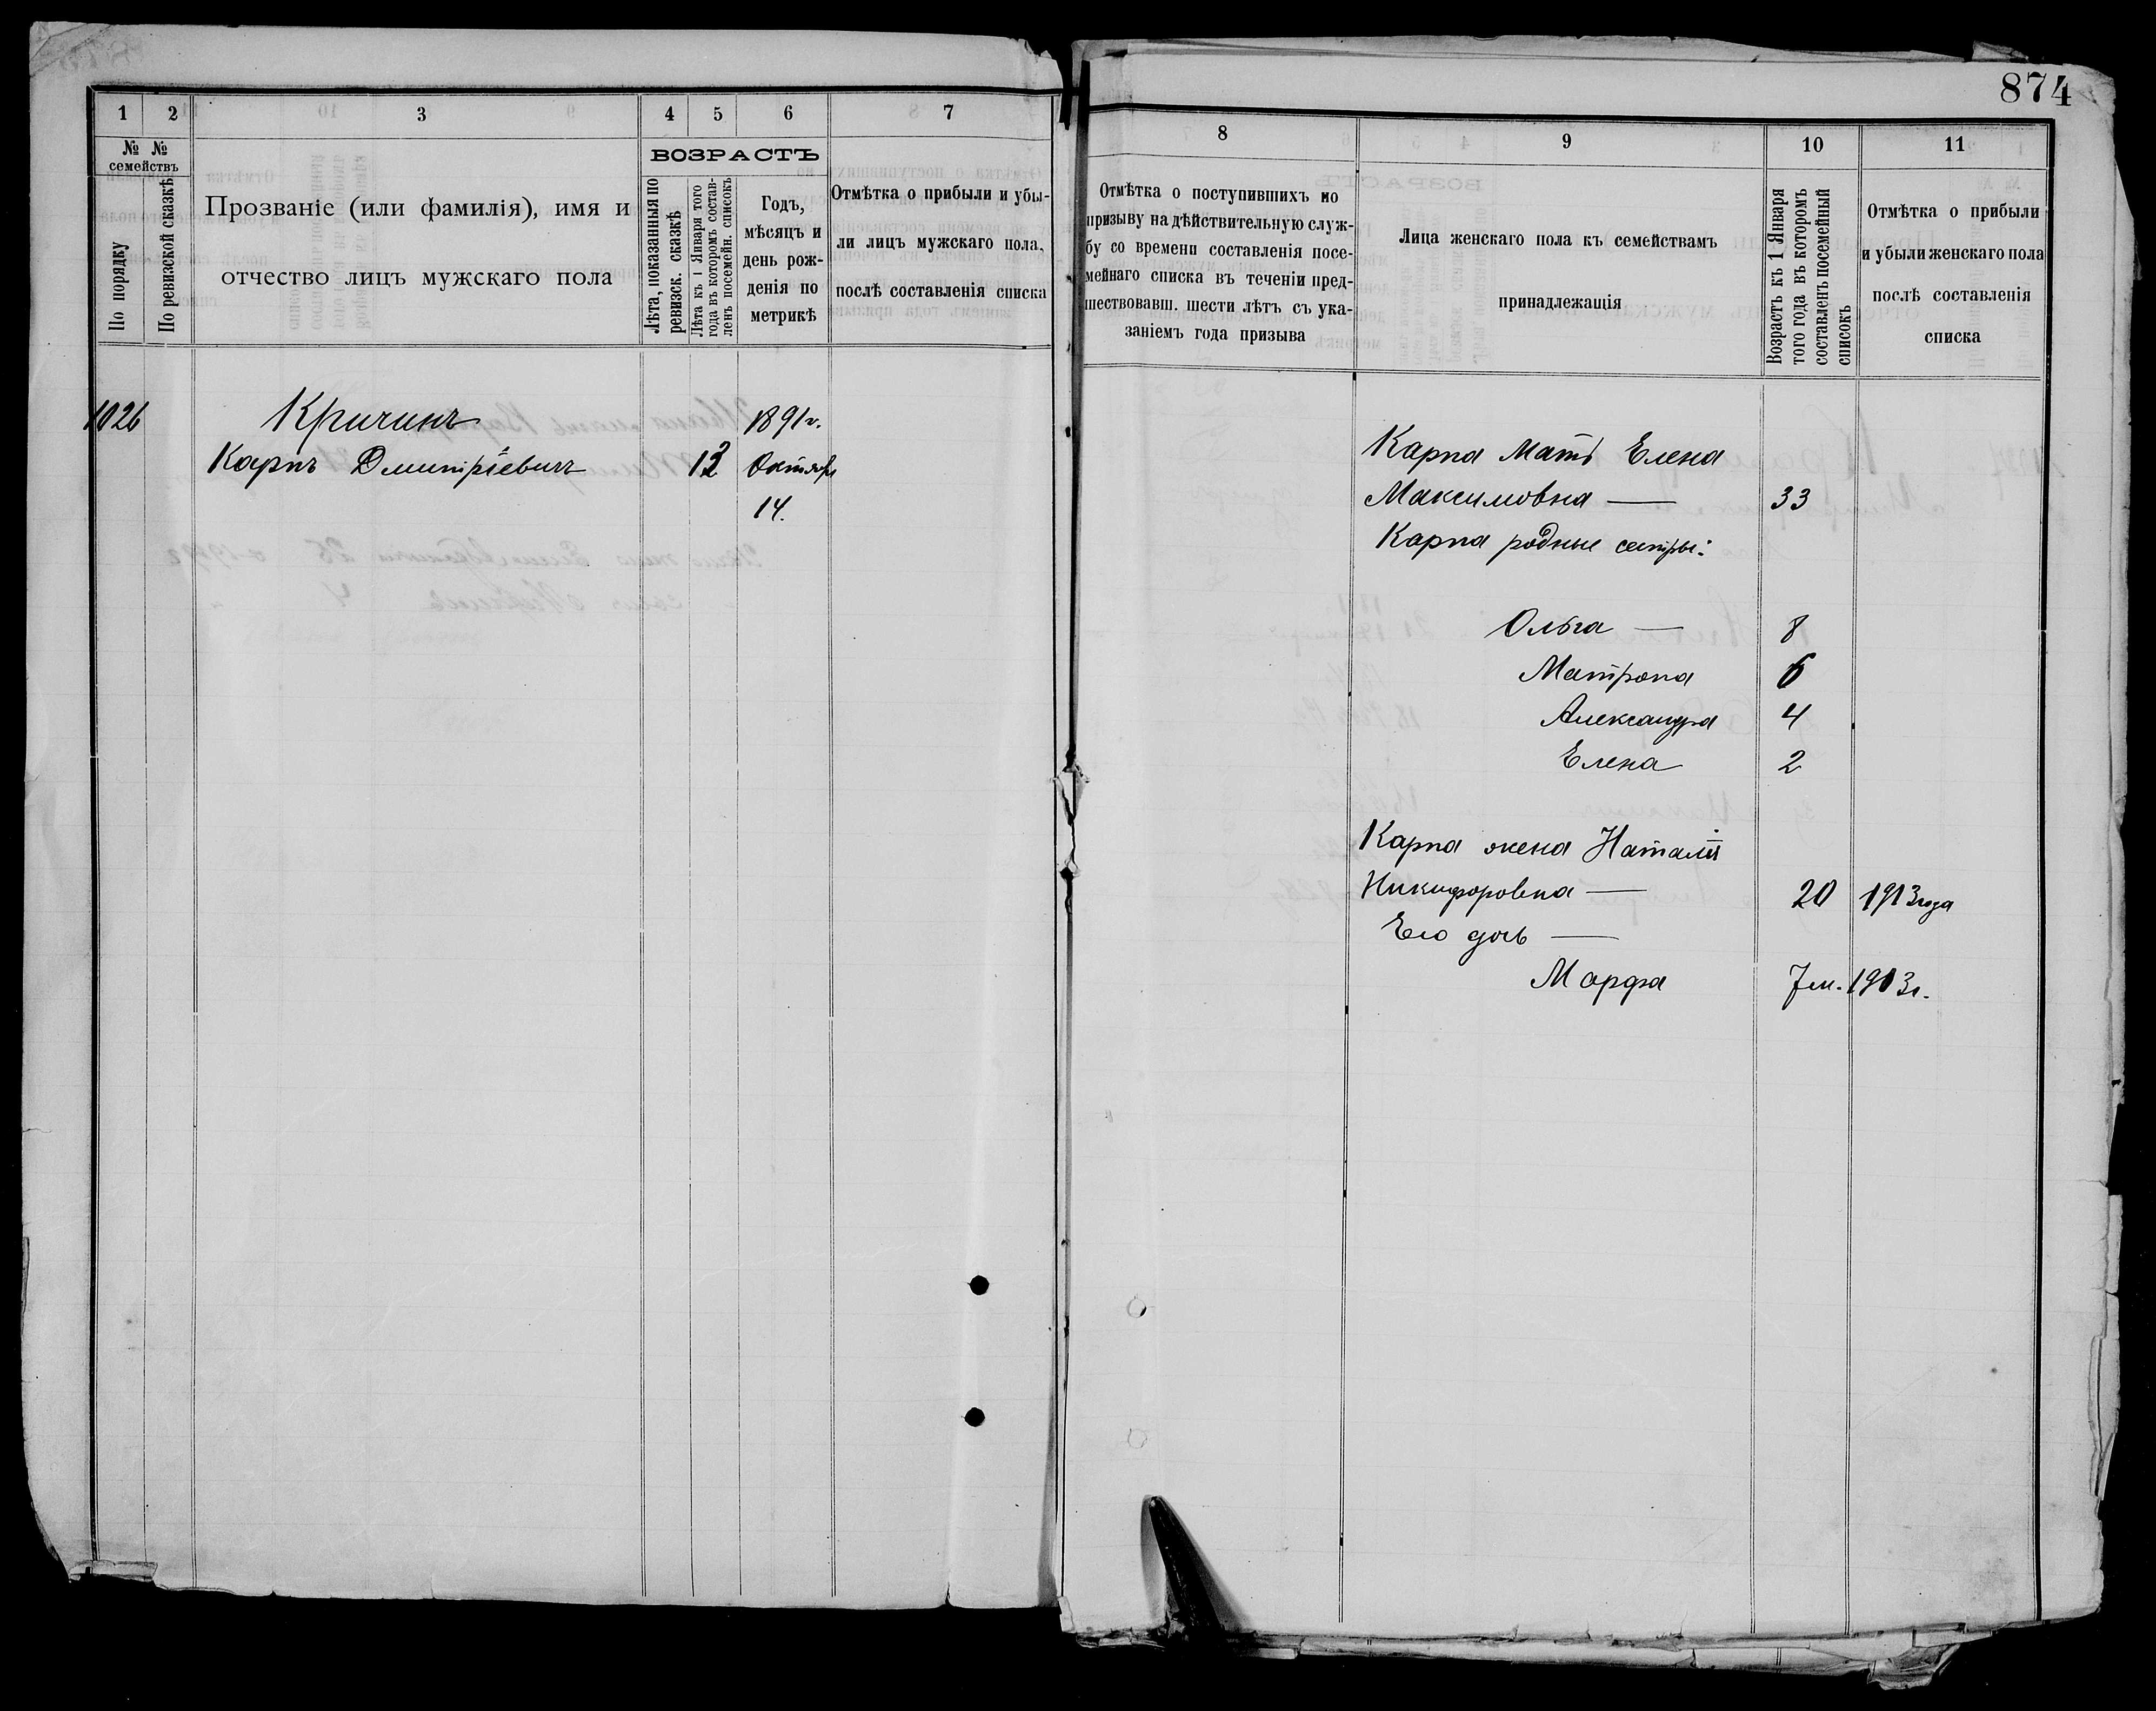 874
1 2 3 4 5 6 7
№ №
семействъ
По порядку
По ревизской сказкѣ
Прозваніе (или фамилія), имя и
отчество лицъ мужскаго пола
ВОЗРАСТЪ
Лѣта, показанныя по
ревизск. сказкѣ
Лѣта къ 1 Января того
года въ которомъ состав-
ленъ посемейн. списокъ
Годъ,
мѣсяцъ и
день рож-
денія по
метрикѣ
Отмѣтка о прибыли и убы-
ли лицъ мужскаго пола,
послѣ составленія списка
1026 Кричинъ 1891 г.
Карпъ Дмитріевичъ 12 Октября
14.
8 9 10 11
Отмѣтка о поступившихъ по
призыву на дѣйствительную служ-
бу со времени составленія посе-
мейнаго списка въ теченіи пред-
шествовавш. шести лѣтъ съ ука-
заніемъ года призыва
Лица женскаго пола къ семействамъ
принадлежащія
Возрастъ къ 1 Января
того года въ которомъ
составленъ посемейный
списокъ
Отмѣтка о прибыли
и убыли женскаго пола
послѣ составленія
списка
Карпа Мать Елена
Максимовна — 33
Карпа родные сестры:
Ольга — 8
Матрона 6
Александра 4
Елена 2
Карпа жена Наталія
Никифоровна — 20 1913 года
Его дочь —
Марфа 7 м. 1913 г.